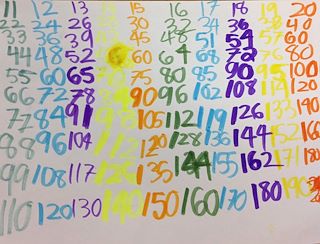 11 12 13 15 16 17 18 19 20
22 24 26 30 32 34 36 38 40
33 36 39 45 48 51 54 57 60
44 48 52 60 64 68 72 76 80
55 60 65 75 80 85 90 95 100
66 72 78 90 96 102 108 114 120
77 84 91 105 112 119 126 133 140
88 96 104 112 120 128 136 144 152 160
99 108 117 126 135 144 155 162 171 180
110 120 130 140 150 160 170 180 190